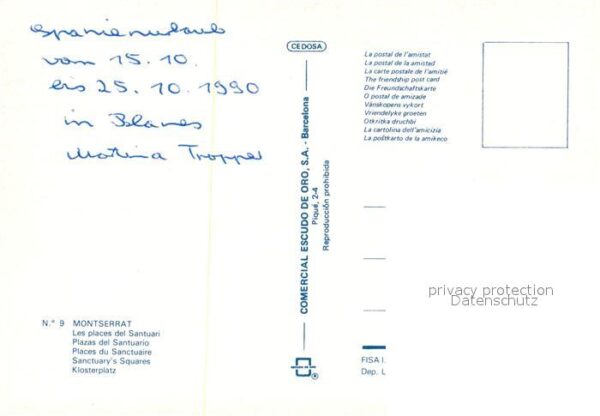 Spanienurlaub
vom 15.10.
bis 25.10.1990
in Blanes
Martina Tropper
N.° 9 MONTSERRAT
Les places del Santuari
Plazas del Santuario
Places du Sanctuaire
Sanctuary's Squares
Klosterplatz
CEDOSA
COMERCIAL ESCUDO DE ORO, S.A. - Barcelona
Piqué, 2-4
Reproducción prohibida
La postal de l'amistat
La postal de la amistad
La carte postale de l'amitié
The friendship post card
Die Freundschaftskarte
O postal de amizade
Vänskopens vykort
Vriendelyke groeten
Otkritka druchbi
La cartolina dell'amicizia
La poŝtkarto de la amikeco
privacy protection
Datenschutz
FISA I.
Dep. L